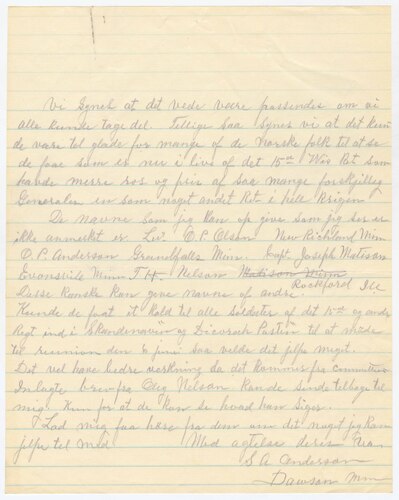 Vi Synes at det vede være passendes om vi
alle kunde tage del. Tillige Saa Synes vi at det kun
de være til glæde for mange af de Norske folk til at se
de faae som er nu i live af det 15de Wis Rgt som
havde merre ros og pris af saa mange forskjellig
Generaler en som noget andet Rgt i hele Krigen
De navne Som jeg kan op give Som jeg ser er
ikke anmerket er Liu. O.P. Olson New Richland Minn
O.P. Anderson Granitfalls Minn. Capt Joseph Matison
Evansvile Minn T H. Nelson Matison Minn
Rockford Ill
Disse kanske kan give navne af andre.
Kunde de faat it Kald til alle Soldater af det 15de og andre
Rgt ind i Skandenaven og Decorah Posten til at møde
til reunion den 6 juni saa vilde det jelpe meget.
Det vel have bedre verkning da det kommer fra committeen
Inlagte brev fra Oleg Nelson kande sende tilbage til
mig. Kun for at de kan se hvad han Siger.
Lad mig faa høre fra dem om det noget jeg kan
jelpe til med Med agtelse deres Ven
S A Anderson
Dawson Minn